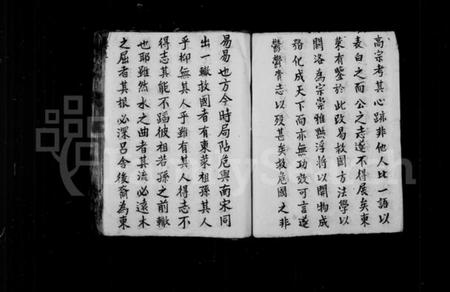 高宗考其心跡非他人比一語以
表白之而公之志遂不得展矣東
萊有鑒於此改易故國方法學以
關洛為宗崇雅黜浮將以開物成
務化成天下而亦無功效可言遂
鬱鬱賫志以歿甚矣故危國之非
易易也方今時局阽危與南宋同
出一轍故國者有東萊祖孫其人
乎抑無其人乎雖有其人得志不
得志其能不蹈彼祖若孫之前轍
也耶雖然水之曲者其流必遠木
之屈者其根必深吕舍後裔為東